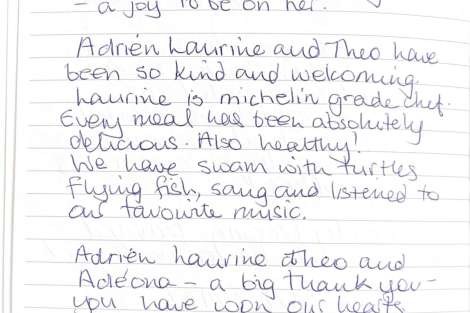 - a joy to be on her.
Adrién Laurine and Theo have
been so kind and welcoming.
Laurine is michelin grade chef.
Every meal has been absolutely
delicious. Also healthy!
We have swam with turtles
flying fish, sang and listened to
our favourite music.
Adrién Laurine & Theo and
Adéona - a big thank you -
you have won our hearts